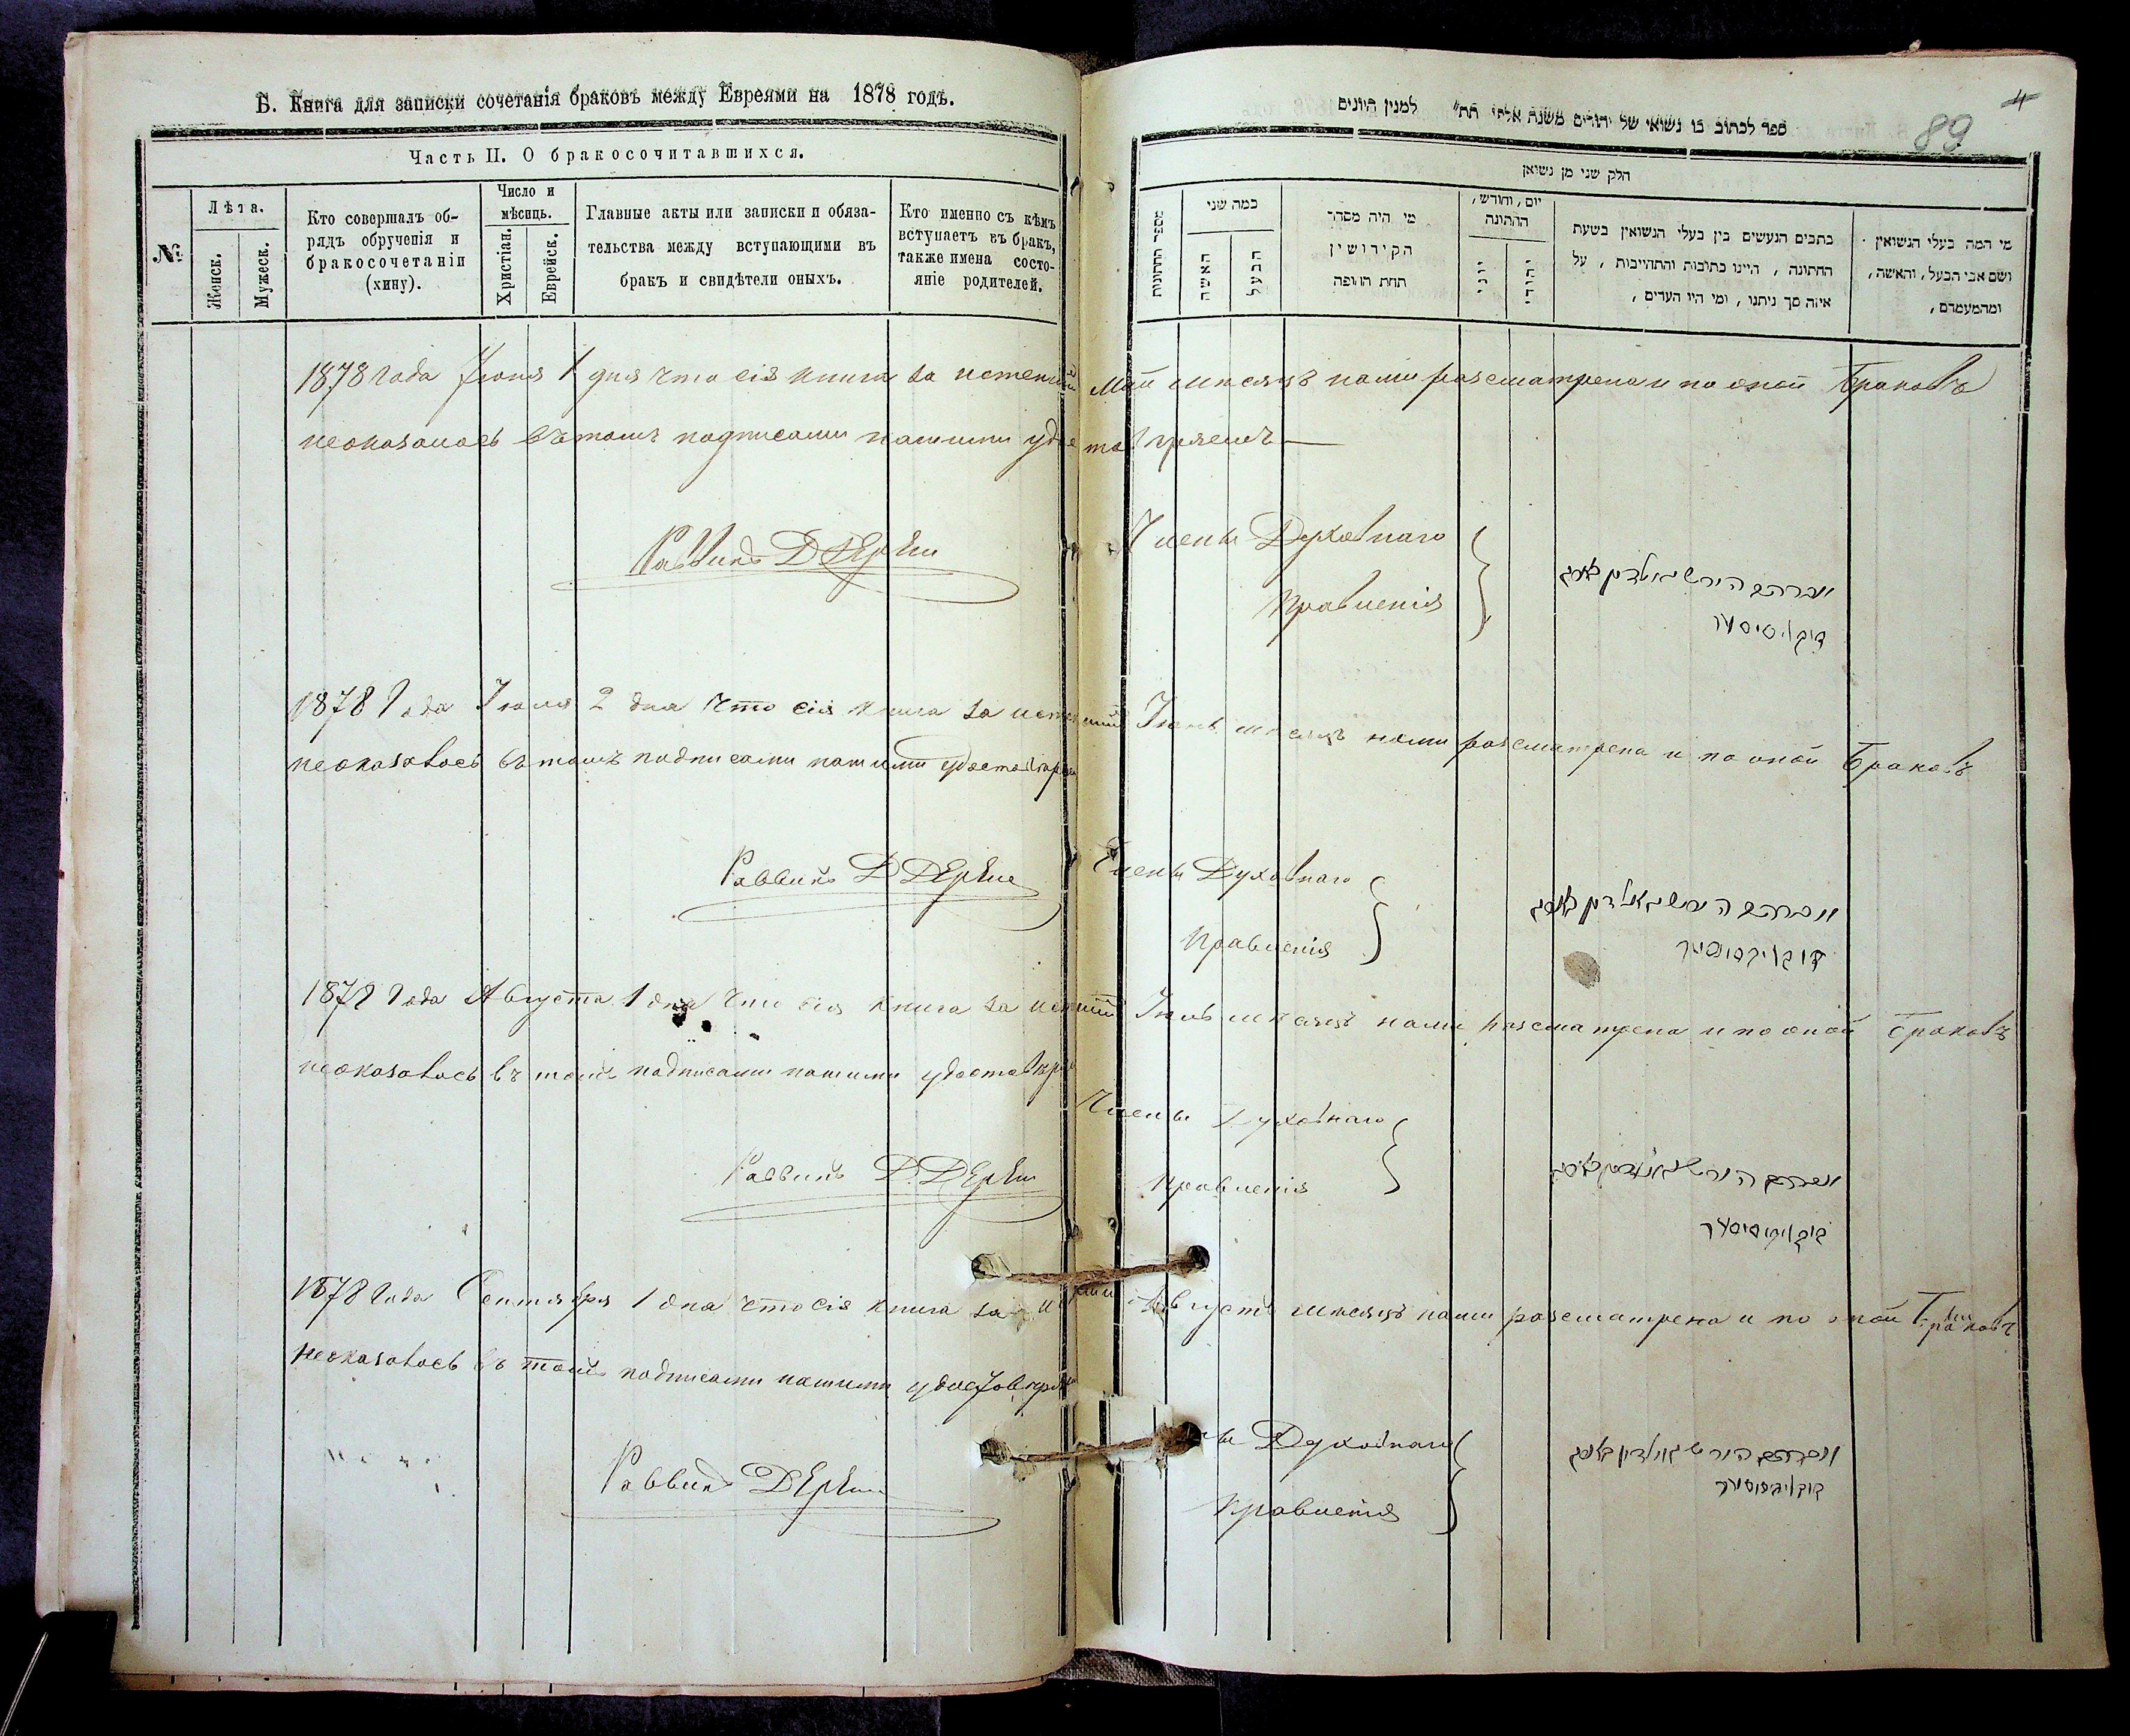 Б. Книга для записки сочетанія браковъ между Евреями на 1878 годъ.
Часть II. О бракосочитавшихся.
№
Лѣта.
Женск.
Мужеск.
Кто совершалъ об-
рядъ обрученія и
бракосочетаніи
(хину).
Число и
мѣсяцъ.
Христіан.
Еврейск.
Главные акты или записки и обяза-
тельства между вступающими въ
бракъ и свидѣтели оныхъ.
Кто именно съ кѣмъ
вступаетъ въ бракъ,
также имена состо-
яніе родителей.
4
89
ספר לכתוב בו נשואי של יהודים משנת אלפי תת״ למנין היונים
חלק שני מן נשואין
מספר החתונות
כמה שני
האשה
הבעל
מי היה מסדר
הקידושין
תחת החופה
יום, וחודש,
החתונה
יוני
יהודי
כתבים הנעשים בין בעלי הנשואין בשעת
החתונה, היינו כתובות והתחייבות, על
איזה סך ניתנו, ומי היו העדים,
מי המה בעלי הנשואין
ושם אבי הבעל, והאשה,
ומהמעמדם,
1878 Года Іюня 1 дня что сія книга за истекшій Май мѣсяцъ нами разсматрена и по оной Браковъ
неоказалось въ томъ подписами нашими удостовѣряемъ
Раввинъ
Члены Духовнаго
Правленія
1878 Года Іюля 2 дня что сія книга за истекшій Іюнь мѣсяцъ нами разсматрена и по оной Браковъ
неоказалось въ томъ подписами нашими удостовѣряемъ
Раввинъ
Члены Духовнаго
Правленія
1878 Года Августа 1 дня что сія книга за истекшій Іюль мѣсяцъ нами разсматрена и по оной Браковъ
неоказалось въ томъ подписами нашими удостовѣряемъ
Раввинъ
Члены Духовнаго
Правленія
1878 Года Сентября 1 дня что сія книга за Августъ мѣсяцъ нами разсматрена и по оной Браковъ
неоказалось въ томъ подписами нашими удостовѣряемъ
Раввинъ
Духовнаго
Правленія